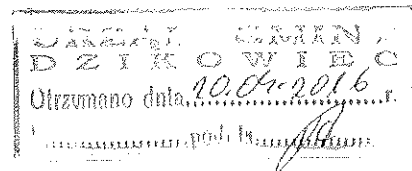 URZĄD GMINY
DZIKOWIEC
Otrzymano dnia 20.04.2016 r.
pod